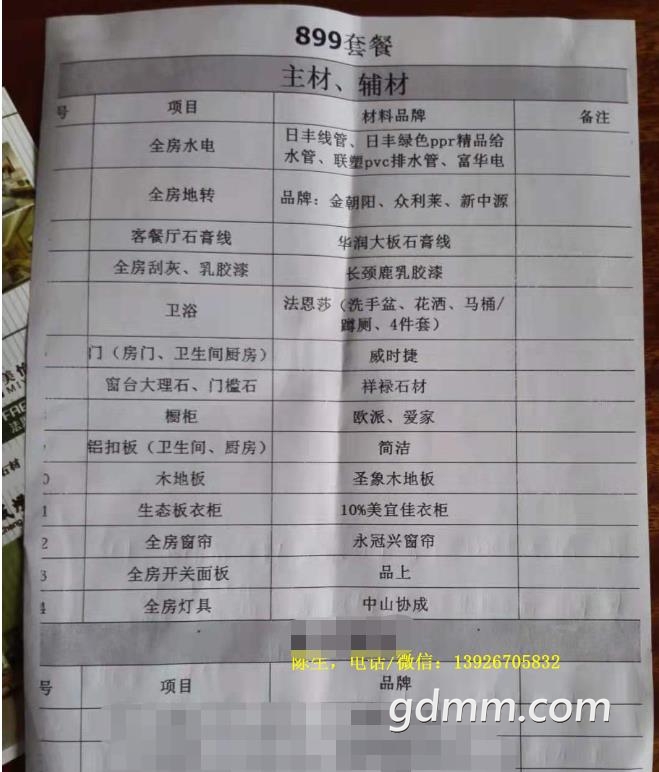 899套餐
主材、辅材
号 项目 材料品牌 备注
全房水电 日丰线管、日丰绿色ppr精品给
水管、联塑pvc排水管、富华电
全房地转 品牌：金朝阳、众利莱、新中源
客餐厅石膏线 华润大板石膏线
全房刮灰、乳胶漆 长颈鹿乳胶漆
卫浴 法恩莎（洗手盆、花洒、马桶/
蹲厕、4件套）
门（房门、卫生间厨房） 威时捷
窗台大理石、门槛石 祥禄石材
橱柜 欧派、爱家
铝扣板（卫生间、厨房） 简洁
0 木地板 圣象木地板
1 生态板衣柜 10%美宜佳衣柜
2 全房窗帘 永冠兴窗帘
3 全房开关面板 品上
4 全房灯具 中山协成
陈生，电话/微信：13926705832
号 项目 品牌
gdmm.com